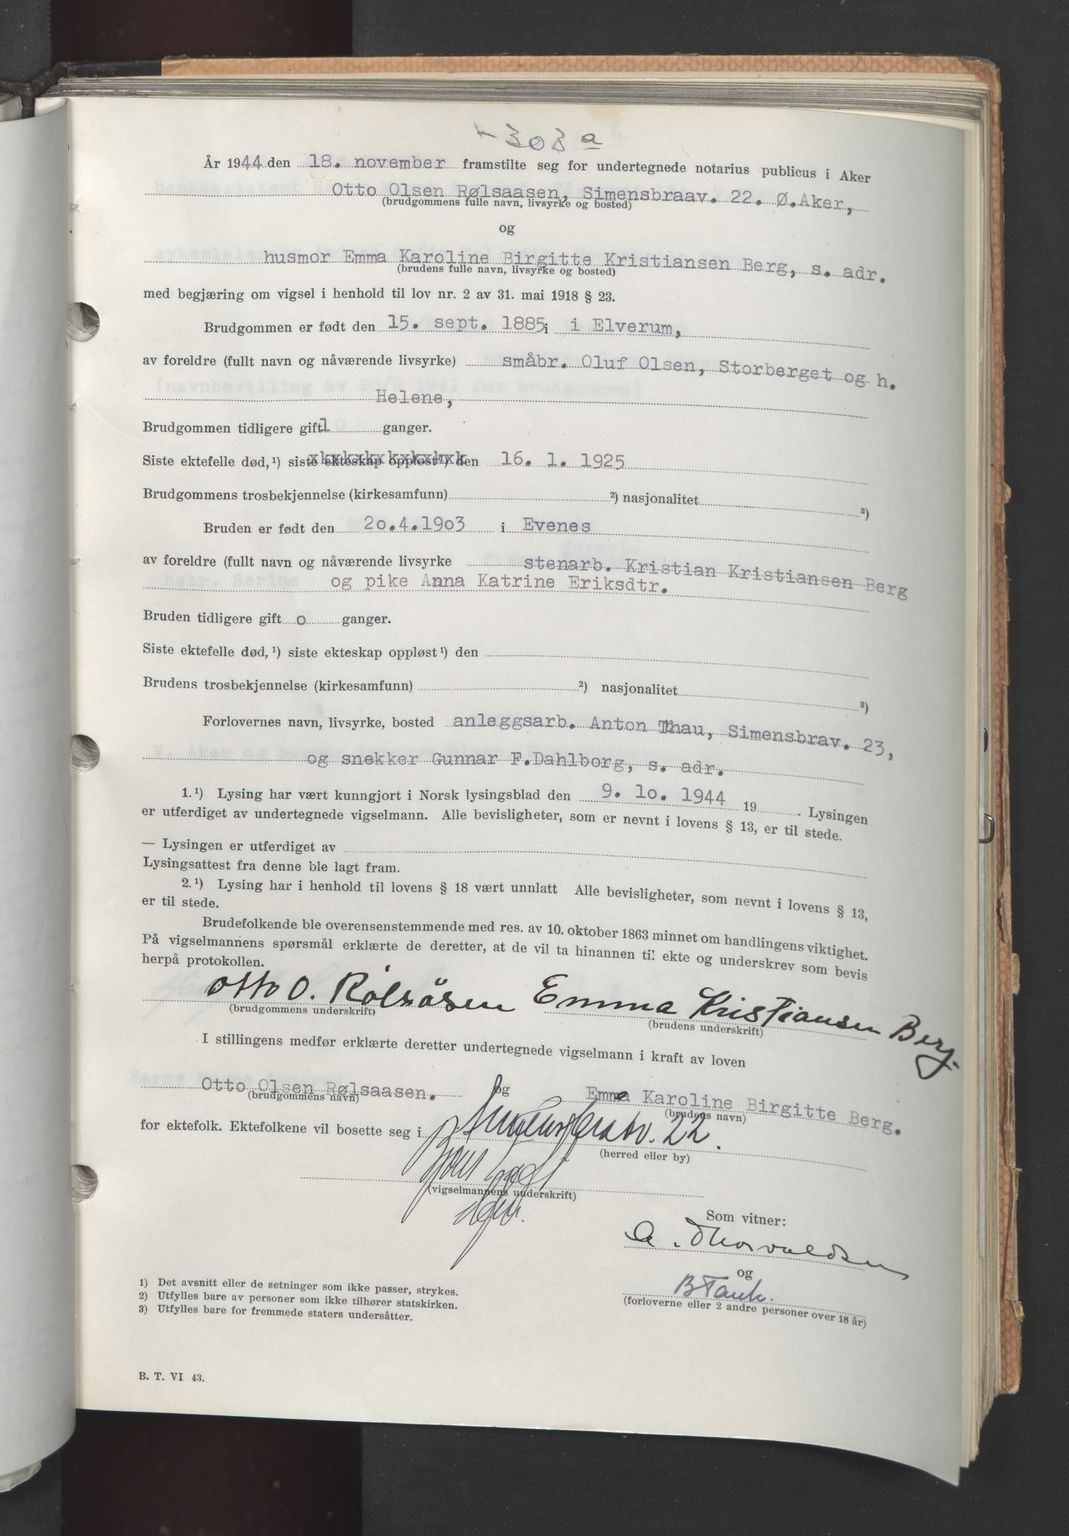 303 a
År 1944 den 18. november framstilte seg for undertegnede notarius publicus i Aker
Otto Olsen Rølsaasen, Simensbraav. 22. Ø.Aker,
(brudgommens fulle navn, livsyrke og bosted)
og
husmor Emma Karoline Birgitte Kristiansen Berg, s. adr.
(brudens fulle navn, livsyrke og bosted)
med begjæring om vigsel i henhold til lov nr. 2 av 31. mai 1918 § 23.
Brudgommen er født den 15. sept. 1885 i i Elverum,
av foreldre (fullt navn og nåværende livsyrke) småbr. Oluf Olsen, Storberget og h.
Helene,
Brudgommen tidligere gift 1 ganger.
Siste ektefelle død,¹) siste ekteskap oppløst¹) den 16. 1. 1925
Brudgommens trosbekjennelse (kirkesamfunn) ²) nasjonalitet ³)
Bruden er født den 2o.4.19o3 i Evenes
av foreldre (fullt navn og nåværende livsyrke stenarb. Kristian Kristiansen Berg
og pike Anna Katrine Eriksdtr.
Bruden tidligere gift o ganger.
Siste ektefelle død,¹) siste ekteskap oppløst¹) den
Brudens trosbekjennelse (kirkesamfunn) ²) nasjonalitet ³)
Forlovernes navn, livsyrke, bosted anleggsarb. Anton Thau, Simensbrav. 23,
og snekker Gunnar F.Dahlborg, s. adr.
1.¹) Lysing har vært kunngjort i Norsk lysingsblad den 9. 1o. 1944 19 . Lysingen
er utferdiget av undertegnede vigselmann. Alle bevisligheter, som er nevnt i lovens § 13, er til stede.
— Lysingen er utferdiget av
Lysingsattest fra denne ble lagt fram.
2.¹) Lysing har i henhold til lovens § 18 vært unnlatt Alle bevisligheter, som nevnt i lovens § 13,
er til stede.
Brudefolkende ble overensenstemmende med res. av 10. oktober 1863 minnet om handlingens viktighet.
På vigselmannens spørsmål erklærte de deretter, at de vil ta hinannen til ekte og underskrev som bevis
herpå protokollen.
Otto O. Rølsåsen Emma Kristiansen Berg.
(brudgommens underskrift)
(brudens underskrift)
I stillingens medfør erklærte deretter undertegnede vigselmann i kraft av loven
Otto Olsen Rølsaasen. og Emma Karoline Birgitte Berg.
(brudgommens navn)
(brudens navn)
for ektefolk. Ektefolkene vil bosette seg i Simensbrav. 22.
(herred eller by)
(vigselmannens underskrift)
Som vitner:
A. Thorvaldsen
og
B Tank.
(forloverne eller 2 andre personer over 18 år)
1) Det avsnitt eller de setninger som ikke passer, strykes.
2) Utfylles bare av personer som ikke tilhører statskirken.
3) Utfylles bare for fremmede staters undersåtter.
B. T. VI 43.